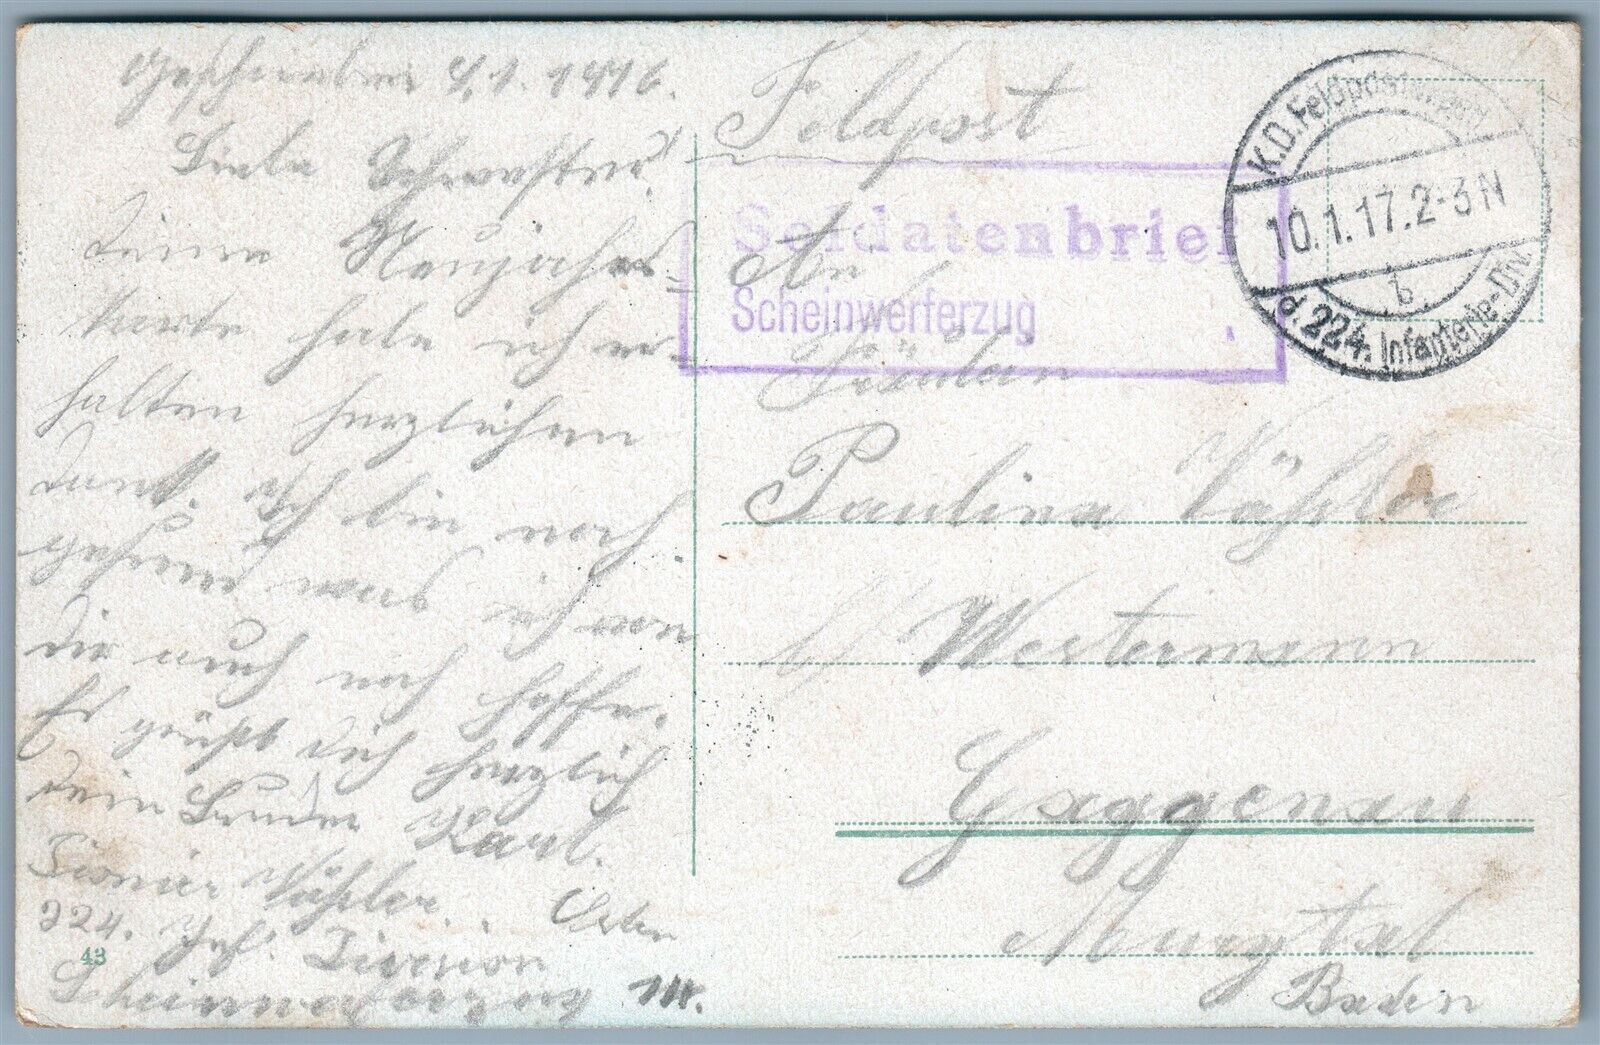 Geschrieben 4.1.1916.
Liebe Schwester!
Deine Neujahrs-
karte habe ich er-
halten herzlichen
Dank. Ich bin noch
gesund was ich von
Dir auch noch hoffe.
Es grüßt Dich herzlich
Dein Bruder Karl.
Pionier
224. Inf. Division
Scheinwerferzug
43
Feldpost
Soldatenbrief
Scheinwerferzug
K.D. Feldpostexped.
10.1.17.2-3N
b
d. 224. Infanterie-Div.
An
Fräulein
Paulina
b/ Westermann
Gaggenau
Murgtal
Baden